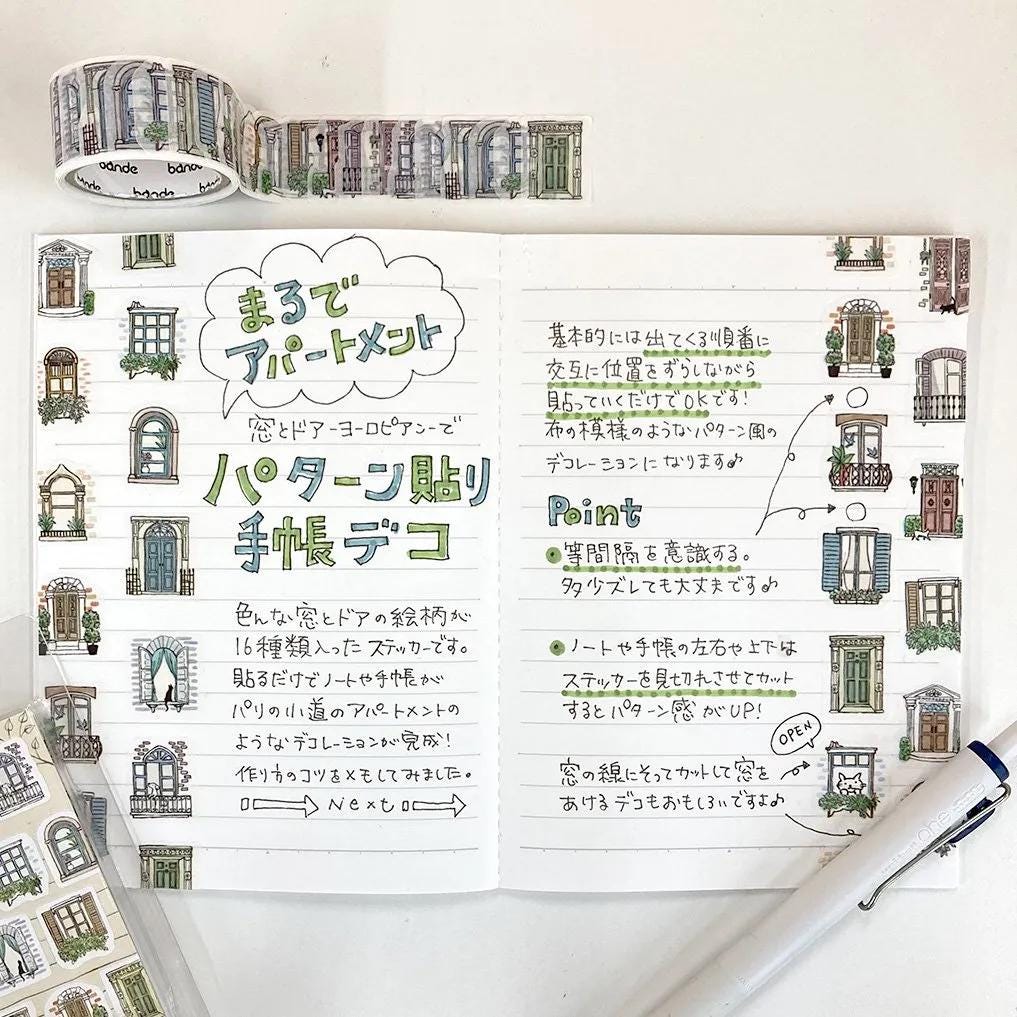 bande bande bande
bande
まるで
アパートメント
窓とドアーヨーロピアンーで
パターン貼り
手帳デコ
色んな窓とドアの絵柄が
16種類入ったステッカーです。
貼るだけでノートや手帳が
パリの小道のアパートメントの
ようなデコレーションが完成！
作り方のコツをメモしてみました。
Next
基本的には出てくる順番に
交互に位置をずらしながら
貼っていくだけでOKです！
布の模様のようなパターン風の
デコレーションになります♪
Point
等間隔を意識する。
多少ズレても大丈夫です♪
ノートや手帳の左右や上下は
ステッカーを見切れさせてカット
するとパターン感がUP！
OPEN
窓の線にそってカットして窓を
あけるデコもおもしろいですよ♪
one